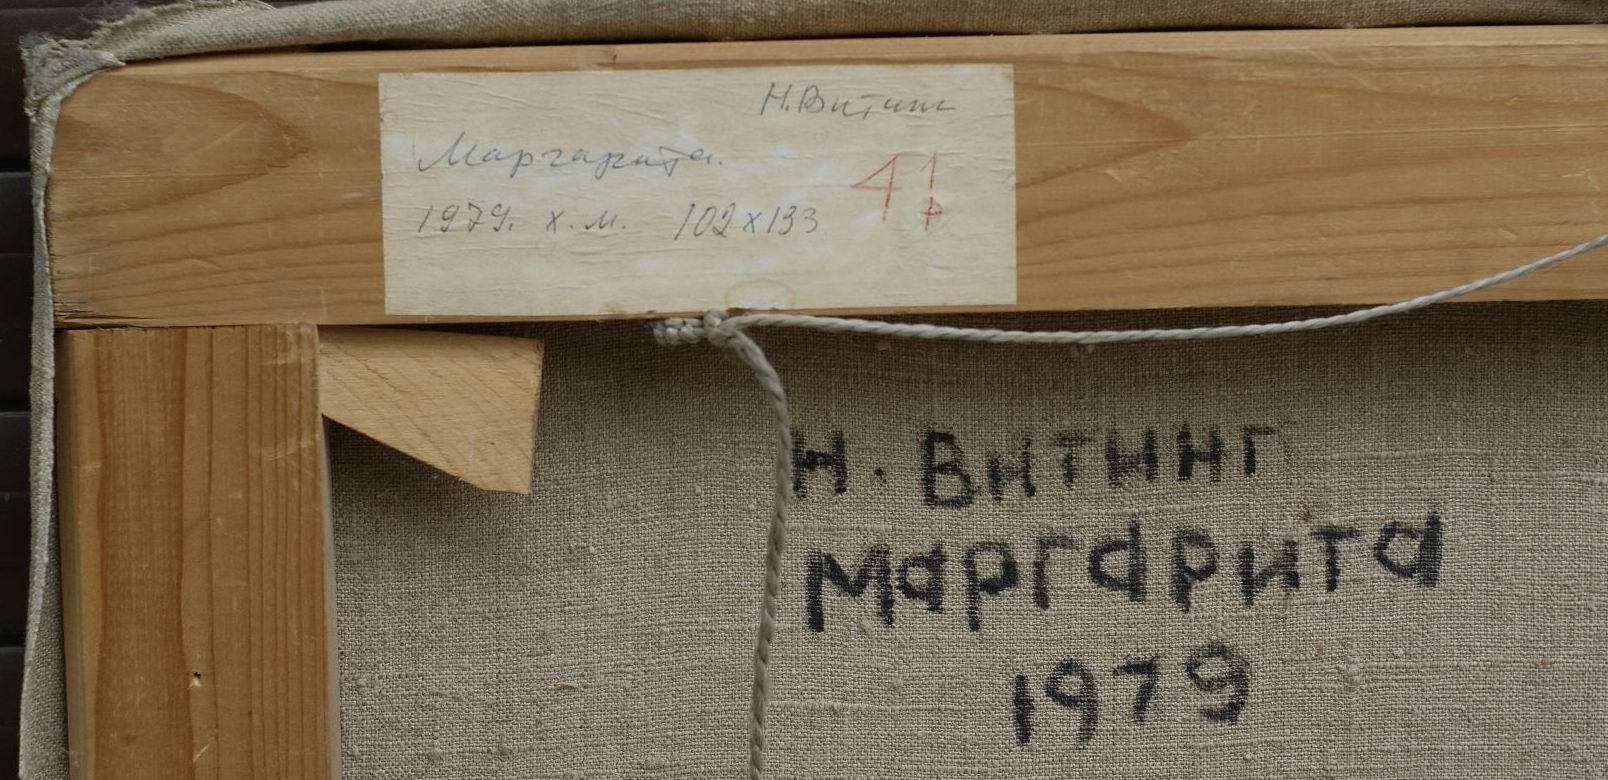 Н. Витинг
Маргарита.
1979г. х.м. 102х133
41
Н. Витинг
Маргарита
1979